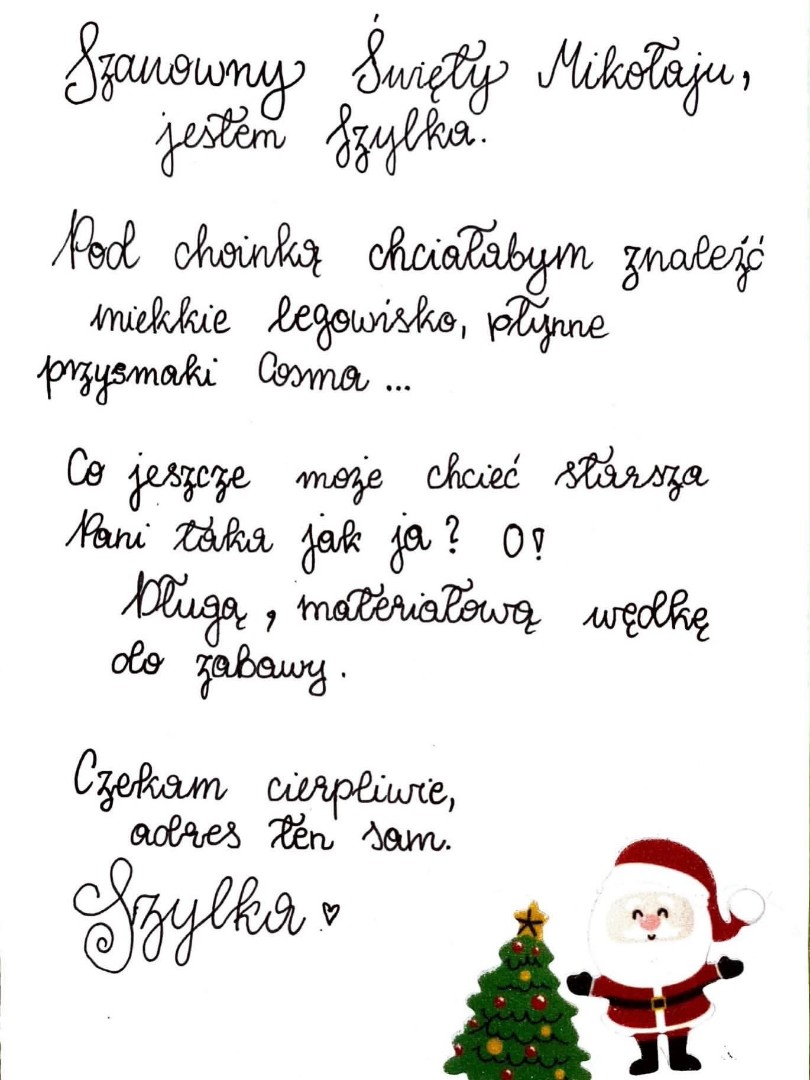 Szanowny Święty Mikołaju,
jestem Szylka.
Pod choinką chciałabym znaleźć
miekkie legowisko, płynne
przysmaki Cosma ...
Co jeszcze może chcieć starsza
Pani taka jak ja? O!
Długą, materiałową wędkę
do zabawy.
Czekam cierpliwie,
adres ten sam.
Szylka ♡